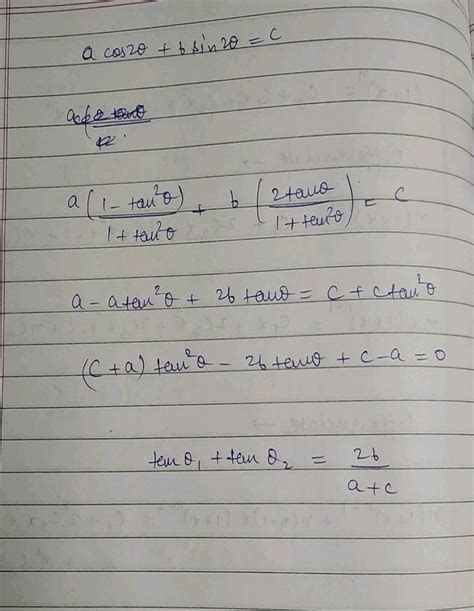 a cos2θ + b sin2θ = c
a(1 - tan²θ / 1 + tan²θ) + b(2tanθ / 1 + tan²θ) = c
a - a tan²θ + 2b tanθ = c + c tan²θ
(c + a) tan²θ - 2b tanθ + c - a = 0
tanθ₁ + tanθ₂ = 2b / a + c